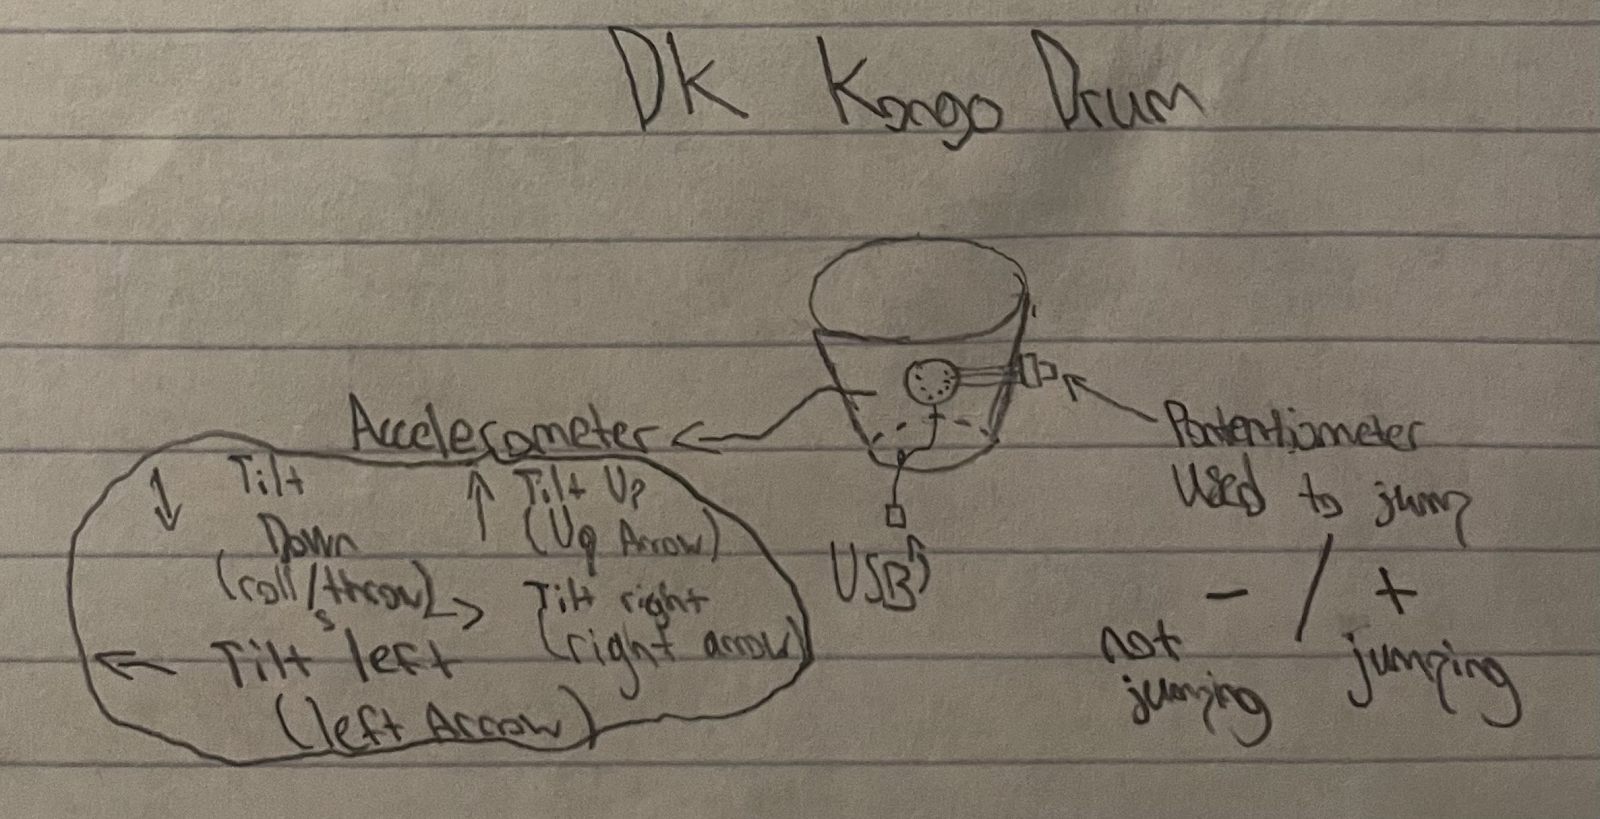 DK Kongo Drum
Accelerometer
Tilt
Down
(roll/throw)
Tilt Up
(Up Arrow)
Tilt right
(right arrow)
Tilt left
(left Arrow)
USB
Pontentiometer
Used to jump
- / +
not
jumping
jumping